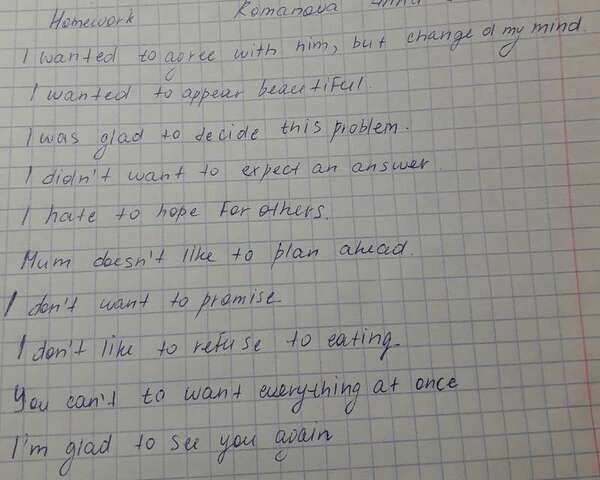 Homework Romanova Anna
I wanted to agree with him, but changed my mind
I wanted to appear beautiful.
I was glad to decide this problem.
I didn't want to expect an answer.
I hate to hope for others.
Mum doesn't like to plan ahead.
I don't want to promise.
I don't like to refuse to eating.
You can't to want everything at once
I'm glad to see you again